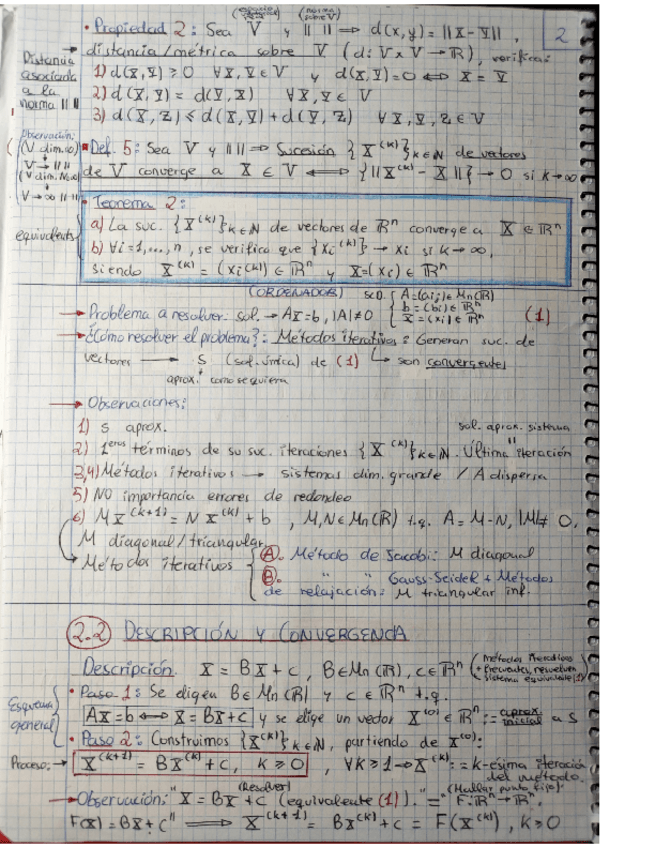 (espacio vectorial) (norma sobre V)
• Propiedad 2: Sea V y || || ⟹ d(x,y) = ||x-y||, 2
distancia/métrica sobre V (d: V×V → ℝ), verifica:
Distancia asociada a la norma || ||
1) d(x,y) ≥ 0 ∀x,y ∈ V y d(x,y)=0 ⟺ x = y
2) d(x,y) = d(y,x) ∀x,y ∈ V
3) d(x,z) ≤ d(x,y) + d(y,z) ∀x,y,z ∈ V
Observación:
(V dim.∞)
V → || ||
(V dim. No ∞)
V → ∞ || ||
equivalents
• Def. 5: Sea V y || || ⟹ Sucesión {x^(k)}k∈ℕ de vectores
de V converge a x ∈ V ⟺ {||x^(k) - x||} → 0 si k→∞
• Teorema 2:
a) La suc. {x^(k)}k∈ℕ de vectores de ℝⁿ converge a x ∈ ℝⁿ
b) ∀i=1,...,n, se verifica que {xi^(k)} → xi si k→∞,
siendo x^(k) = (xi^(k)) ∈ ℝⁿ y x=(xi) ∈ ℝⁿ
(ORDENADOR) SCD. { A=(aij) ∈ Mn(ℝ)
→ Problema a resolver: sol. → Ax=b, |A|≠0 { b=(bi) ∈ ℝⁿ (1)
x=(xi) ∈ ℝⁿ
→ ¿Cómo resolver el problema?: Métodos iterativos: Generan suc. de
vectores → s (sol. única) de (1) ↳ son convergentes
aprox. como se quiera
→ Observaciones:
1) s aprox. sol. aprox. sistema
2) 1eros términos de su suc. iteraciones {x^(k)}k∈ℕ. Última iteración
3,4) Métodos iterativos → sistemas dim. grande / A dispersa
5) NO importancia errores de redondeo
6) Mx^(k+1) = Nx^(k) + b, M,N ∈ Mn(ℝ) t.q. A = M-N, |M|≠0,
M diagonal/triangular
Métodos iterativos { A. Método de Jacobi: M diagonal
B. " " Gauss-Seidel + Métodos
de relajación: M triangular inf.
2.2 DESCRIPCIÓN Y CONVERGENCIA
Descripción. x = Bx + c, B ∈ Mn(ℝ), c ∈ ℝⁿ
Esquema general
• Paso 1: Se eligen B ∈ Mn(ℝ) y c ∈ ℝⁿ t.q.
Ax=b ⟺ x = Bx+c y se elige un vector x^(0) ∈ ℝⁿ := aprox. inicial a s
• Paso 2: Construimos {x^(k)}k∈ℕ, partiendo de x^(0):
Proceso: → x^(k+1) = Bx^(k) + c, k ≥ 0, ∀k≥1 → x^(k) := k-ésima iteración
del método.
(Resolver) (Hallar punto fijo)
→ Observación: "x = Bx + c (equivalente (1))." = " F: ℝⁿ → ℝⁿ,
F(x) = Bx + c" ⟹ x^(k+1) = Bx^(k) + c = F(x^(k)), k ≥ 0